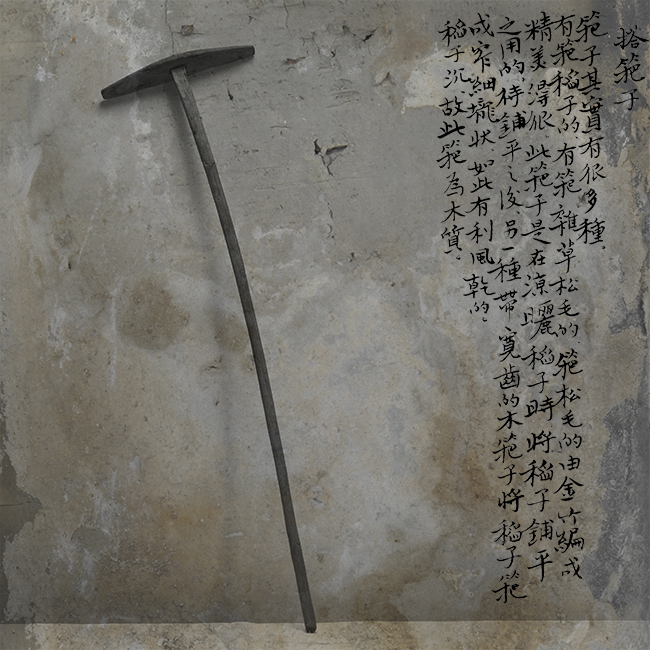 搭笵子
笵子其實有很多種。
有笵稻子的、有笵雜草松毛的、笵松毛的由金竹編成
精美得很、此笵子是在涼曬稻子時將稻子鋪平
之用的、待鋪平之後另一種帶寬齒的木笵子將稻子笵
成窄細壠狀、如此有利風乾的、
稻子沉、故此笵為木質。